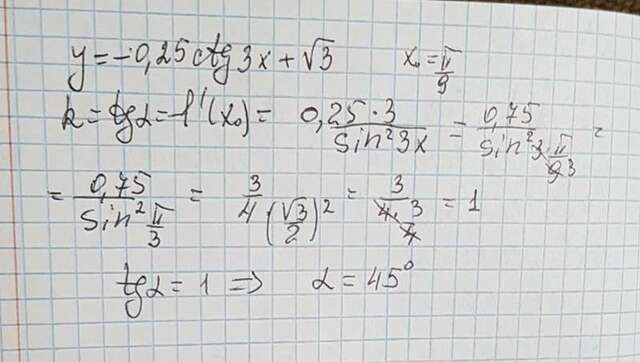 y = -0,25 ctg 3x + √3 x₀ = π/9
k = tg α = f'(x₀) = 0,25 · 3 / sin² 3x = 0,75 / sin² 3 π/9 3 =
= 0,75 / sin² π/3 = 3 / 4 (√3/2)² = 3 / 4 · 3/4 = 1
tg α = 1 ⇒ α = 45°